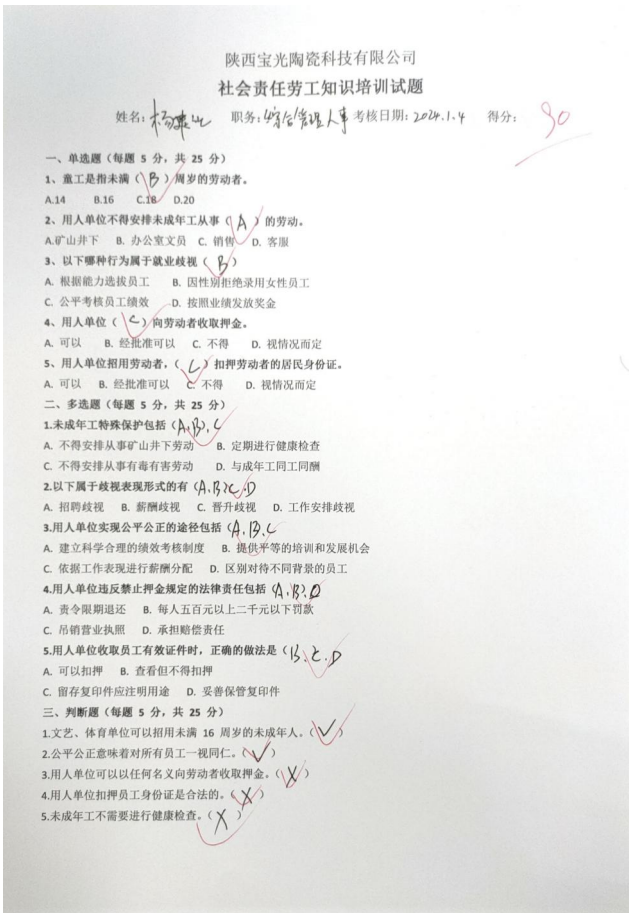 陕西宝光陶瓷科技有限公司
社会责任劳工知识培训试题
姓名: 杨 职务: 综合管理人事 考核日期: 2024.1.4 得分: 90
一、单选题（每题 5 分，共 25 分）
1、童工是指未满（ B ）周岁的劳动者。
A.14 B.16 C.18 D.20
2、用人单位不得安排未成年工从事（ A ）的劳动。
A.矿山井下 B. 办公室文员 C. 销售 D. 客服
3、以下哪种行为属于就业歧视（ B ）
A. 根据能力选拔员工 B. 因性别拒绝录用女性员工
C. 公平考核员工绩效 D. 按照业绩发放奖金
4、用人单位（ C ）向劳动者收取押金。
A. 可以 B. 经批准可以 C. 不得 D. 视情况而定
5、用人单位招用劳动者，（ C ）扣押劳动者的居民身份证。
A. 可以 B. 经批准可以 C. 不得 D. 视情况而定
二、多选题（每题 5 分，共 25 分）
1.未成年工特殊保护包括（A,B,C
A. 不得安排从事矿山井下劳动 B. 定期进行健康检查
C. 不得安排从事有毒有害劳动 D. 与成年工同工同酬
2.以下属于歧视表现形式的有（A,B,C,D
A. 招聘歧视 B. 薪酬歧视 C. 晋升歧视 D. 工作安排歧视
3.用人单位实现公平公正的途径包括（A,B,C
A. 建立科学合理的绩效考核制度 B. 提供平等的培训和发展机会
C. 依据工作表现进行薪酬分配 D. 区别对待不同背景的员工
4.用人单位违反禁止押金规定的法律责任包括（A,B,D
A. 责令限期退还 B. 每人五百元以上二千元以下罚款
C. 吊销营业执照 D. 承担赔偿责任
5.用人单位收取员工有效证件时，正确的做法是（B,C,D
A. 可以扣押 B. 查看但不得扣押
C. 留存复印件应注明用途 D. 妥善保管复印件
三、判断题（每题 5 分，共 25 分）
1.文艺、体育单位可以招用未满 16 周岁的未成年人。（ ✓ ）
2.公平公正意味着对所有员工一视同仁。（ ✓ ）
3.用人单位可以以任何名义向劳动者收取押金。（ X ）
4.用人单位扣押员工身份证是合法的。（ X ）
5.未成年工不需要进行健康检查。（ X ）